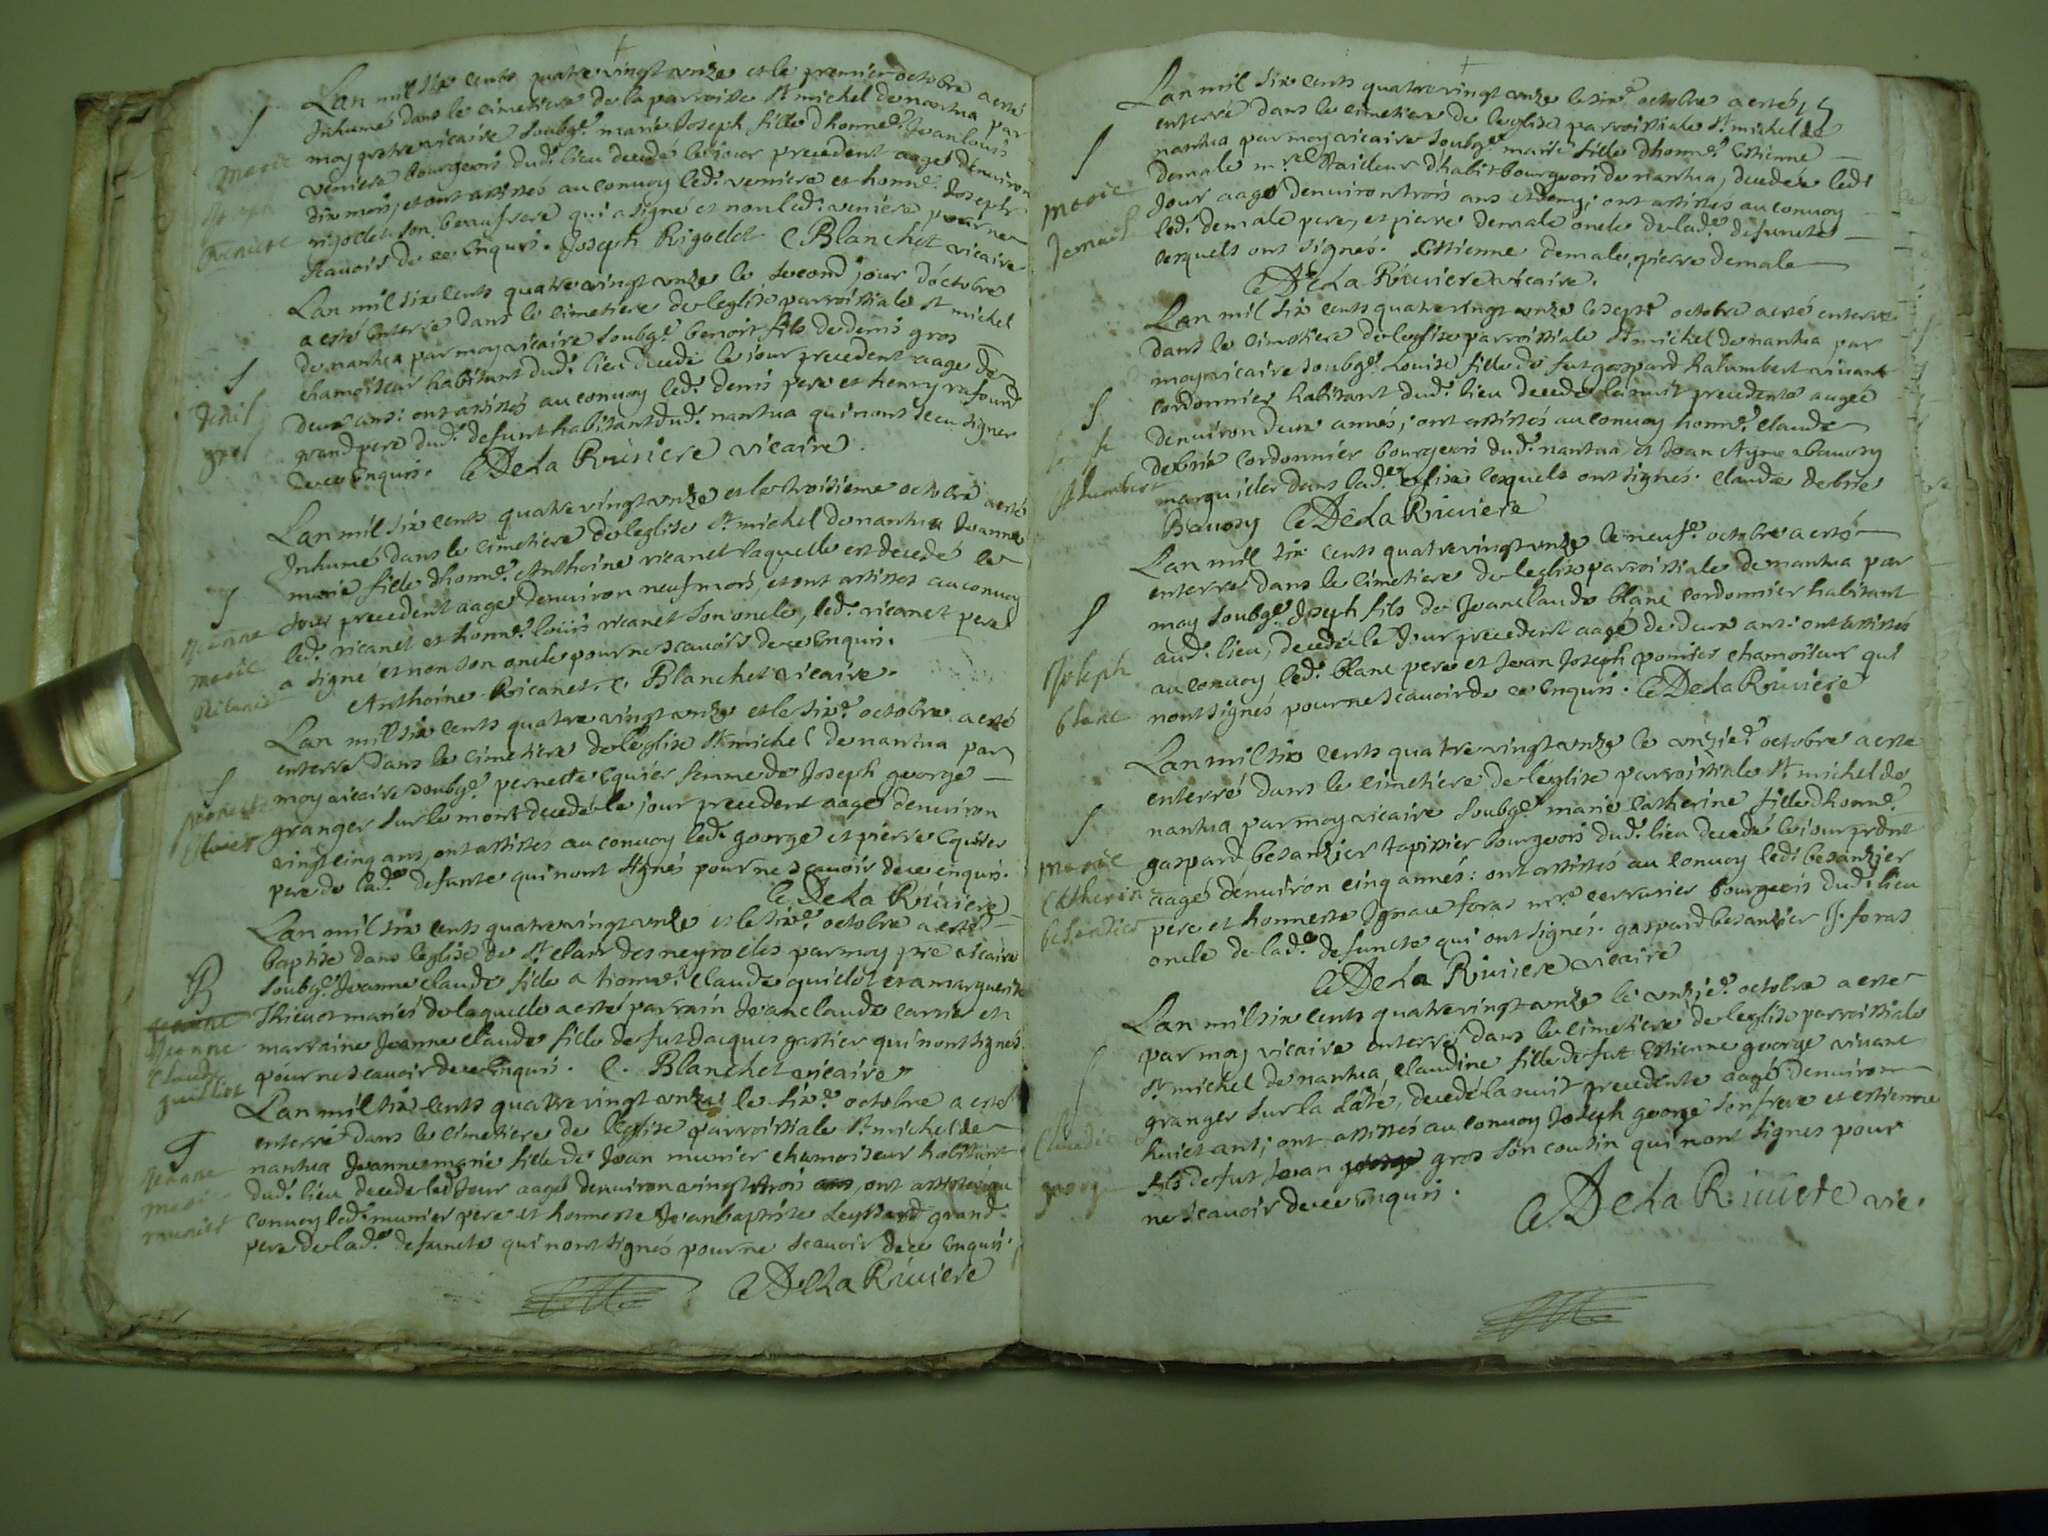 Lan mil six cents quatre vingt unze et le premier octobre a esté
Inhumée dans le cimetiere de la parroisse St michel de nantua par
moy prtre vicaire soubgé. marie Joseph fille dhonne. Jean louis
veniere bourgeois dud. lieu decedé le jour precedent aage denviron
dix mois, et ont assistés au convoy led. veniere et honne. Joseph
rigollet son beaufrere qui a signé et non led. veniere pour ne
scavoir de ce Enquis. Joseph Rigollet C Blanchet vicaire
Lan mil six cents quatre vingt unze le second jour d'octobre
a esté enterré dans le cimetiere de leglise parroissiale St michel
de nantua par moy vicaire soubgé. benoit fils de denis gros
chamoiseur habitant dud. lieu decedé le jour precedent aage de
deux ans: ont assistés au convoy led. denis pere et henry
grand pere dud. defunt habitant dud. nantua qui n'ont sceu signer
de ce Enquis. C De La Riviere vicaire.
Lan mil six cents quatre vingt unze et le troisieme octobre a esté
Inhumé dans le cimetiere de leglise St michel de nantua Jeanne
marie fille dhonne. Anthoine ricanet laquelle est decedé le
Jour precedent aage denviron neuf mois, et ont assistes au convoy
led. ricanet et honne. louis ricanet son oncle, led. ricanet pere
a signé et non son oncle pour ne scavoir de ce Enquis.
Anthoine Ricanet. C. Blanchet vicaire.
Lan mil six cents quatre vingt unze et le six.e octobre a esté
enterré dans le cimetiere de leglise St michel de nantua par
moy vicaire soubgé. pernette Equier femme de Joseph george
granger sur le mont decedé le jour precedent aage denviron
vingt cinq ans, ont assistés au convoy led. george et pierre Equier
pere de lad. defunte qui nont signés pour ne scavoir de ce enquis.
C De La Riviere
Lan mil six cents quatre vingt unze et le six.e octobre a esté
baptise dans leglise de St clair des neyrolles par moy pre vicaire
soubgé. Jeanne claude fille a honne. Claude guillot et a marguerite
Thievot mariés de laquelle a esté parrain Jean claude carrie et
marraine Jeanne claude fille de fut Jacques gastier qui nont signés
pour ne scavoir de ce Enquis. C. Blanchet vicaire
Lan mil six cents quatre vingt unze le six.e octobre a esté
enterré dans le cimetiere de leglise parroissiale St michel de
nantua Jeanne marie fille de Jean munier chamoiseur habitant
dud. lieu decede led. Jour aage denviron vingt trois ans, ont assistés au
convoy led. munier pere et honneste Jean baptiste Leyssard grand
pere de lad. defuncte qui nont signés pour ne scavoir de ce Enquis.
C De La Riviere
Jeanne
marie
Ricanet
Jeanne
Claude
guillot
Jeanne
marie
munier
Lan mil six cents quatre vingt unze le six.e octobre a esté
enterré dans le cimetiere de leglise parroissiale St michel de
nantua par moy vicaire soubgé. marie fille dhonne. Estienne
demale m.re Tailleur dhabit bourgeois de nantua, decedée led.
Jour aage denviron trois ans et demy; ont assistés au convoy
led. demale pere, et pierre demale oncle de lad. defuncte
lesquels ont signés. Estienne demale, pierre demale
C De La Riviere vicaire.
Lan mil six cents quatre vingt unze le sept.e octobre a esté enterré
dans le cimetiere de leglise parroissiale St michel de nantua par
moy vicaire soubgé. Louise fille de fut gaspard halumbert vivant
cordonnier habitant dud. lieu decede la nuit precedente aagée
denviron deux annés, ont assistés au convoy honne. claude
debrie cordonnier bourgeois dud. nantua et Jean Ayme abavosy
marguilier dans lad. eglise lesquels ont signés. claude debrie
Bavosy C De La Riviere
Lan mil six cents quatre vingt unze le neuf.e octobre a estés
enterré dans le cimetiere de leglise parroissiale de nantua par
moy soubgé. Joseph fils de Jean claude blanc cordonnier habitant
aud. lieu, decedé le Jour precedent aagé de deux ans: ont assistés
au convoy led. blanc pere et Jean Joseph chamoiseur qui
nont signés pour ne scavoir de ce Enquis. C De La Riviere
Lan mil six cents quatre vingt unze le unzie.e octobre a esté
enterré dans le cimetiere de leglise parroissiale St michel de
nantua par moy vicaire soubgé. marie catherine fille dhonne.
gaspard besanzier tapissier bourgeois dud. lieu decedé le jour prdnt
aagé denviron cinq annés: ont assistés au convoy led. besanzier
pere et honneste Ignace foras m.re serrurier bourgeois dud. lieu
oncle de lad. defuncte qui ont signés. gaspard besanzier I. foras
C De La Riviere vicaire
Lan mil six cents quatre vingt unze le unzie.e octobre a esté
par moy vicaire enterré dans le cimetiere de leglise parroissiale
St michel de nantua, claudine fille de fut Estienne george vivant
granger sur la Laté, decedé la nuit precedente aagé denviron
huict ans; ont assistés au convoy Joseph george son frere et estienne
fils de fut Jean george gros son cousin qui nont signes pour
ne scavoir de ce Enquis. C De La Riviere vic.
marie
demale
Joseph
blanc
marie
Catherine
besanzier
george